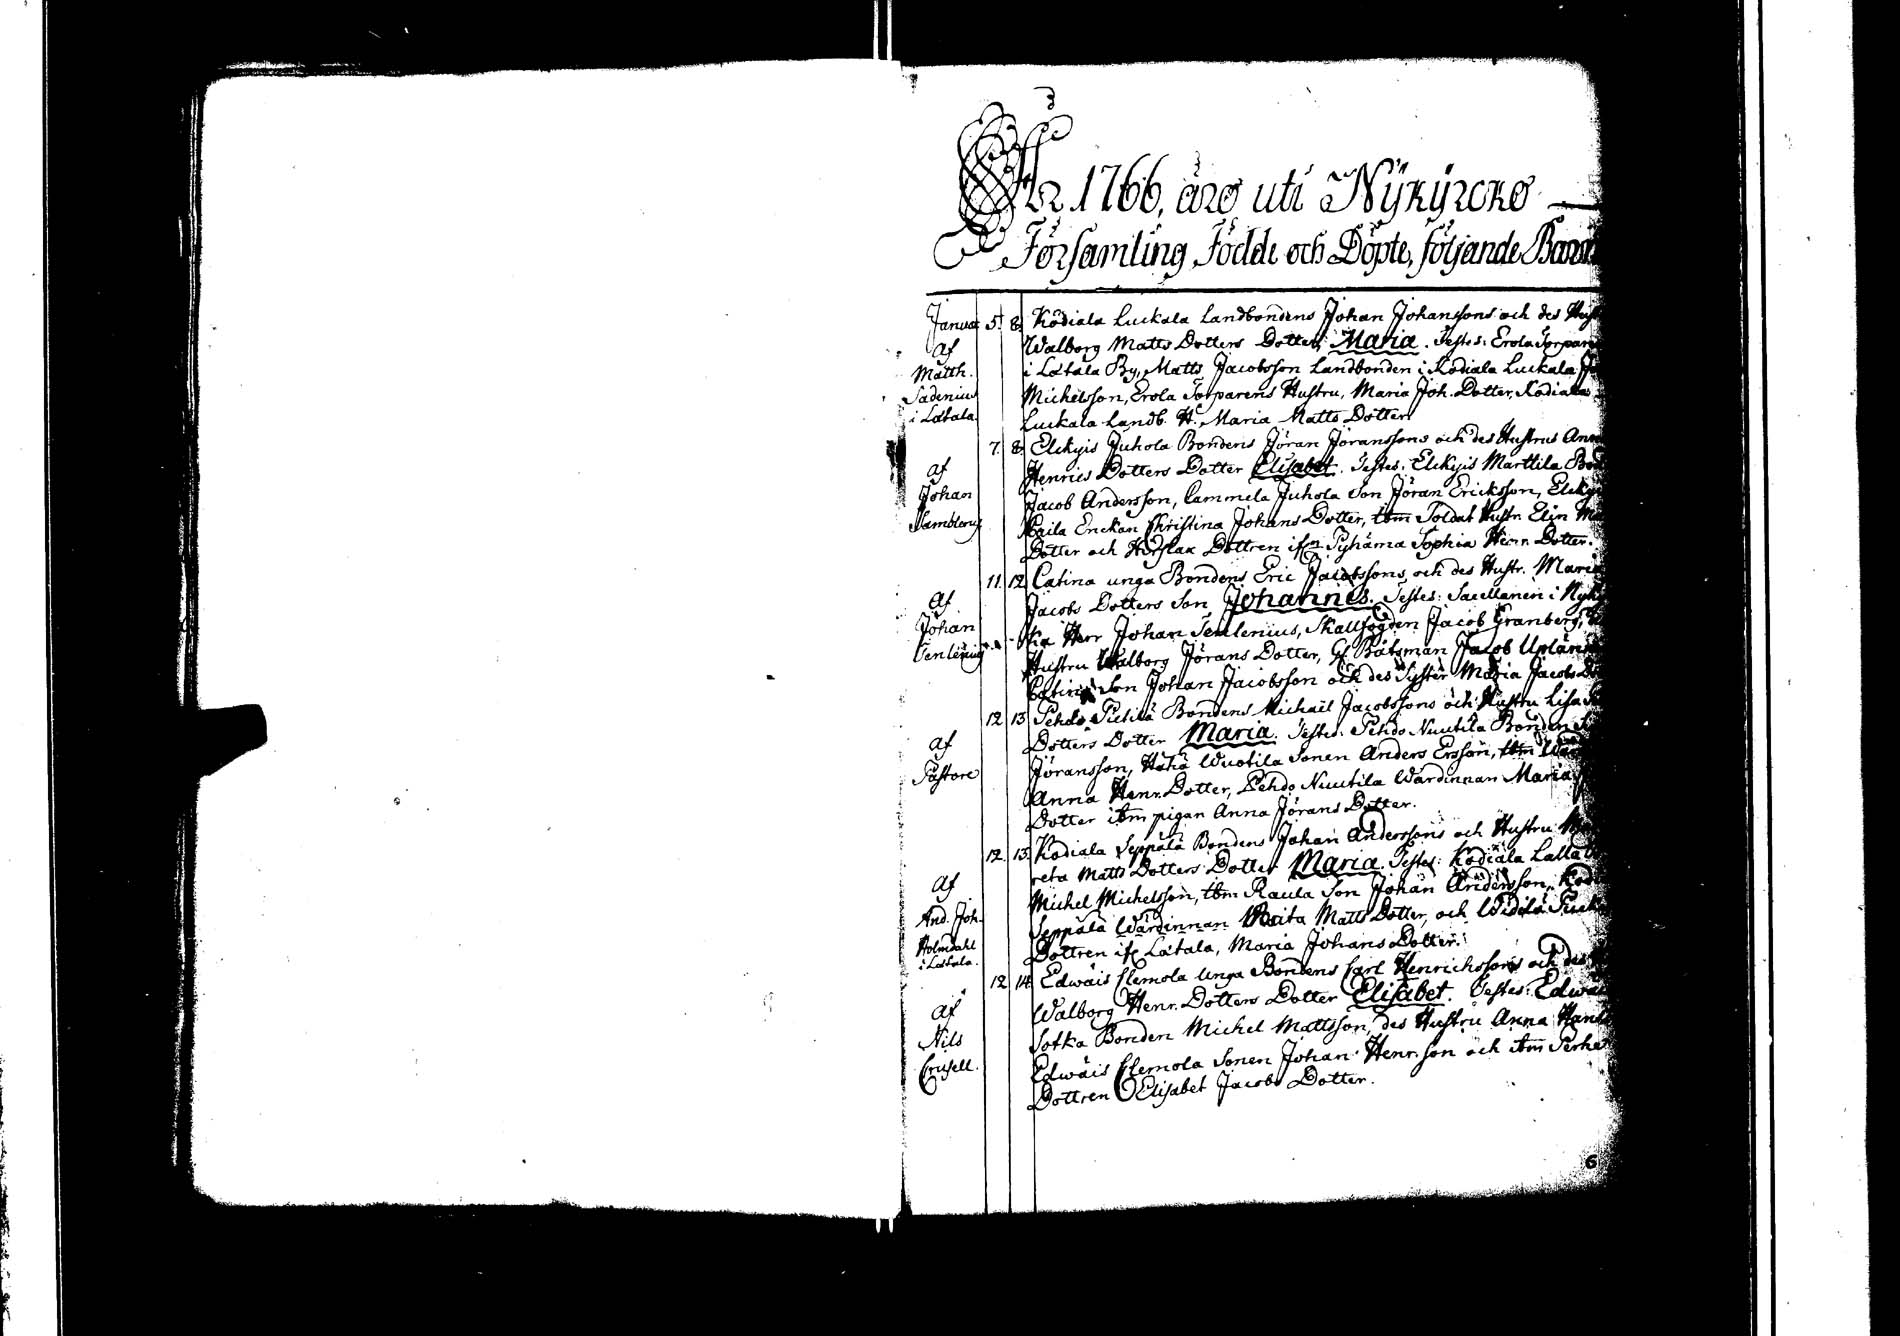 År 1766, äro uti Nykyrcko
Församling Födde och Döpte, följande Barn
Januar 5. 8. Kodiala Luckala Landbondens Johan Johanssons och des
af Walborg Matts Dotters Dotter, Maria. Testes: Erola
Matth. i Latala By, Matts Jacobsson Landbonden i Kodiala Luckala
Sadenius Michelsson, Erola Torparens Hustru, Maria Joh. Dotter, Kodiala
i Latala Luckala Landb. H. Maria Matts Dotter
7. 8. Elckyis Juhola Bondens Jöran Jöranssons och des Hustrus
af Henrics Dotters Dotter Elisabet. Testes: Elckyis Marttila
Johan Jacob Andersson, Cammela Juhola Son Jöran Ericksson,
Kaila Enckan Christina Johans Dotter, ibm Soldat Hustr. Elin
Dotter och Dottren Pyhäma Sophia Henr. Dotter.
11. 12. Catina unga Bondens Eric Jacobssons och des Hustr.
af Jacobs Dotters Son Johannes. Testes: Sacellanen i
Johan ka Herr Johan Tenlenius, Skallfogden Jacob Granberg,
Tenlenius Hustru Walborg Jörans Dotter, Båtsman Jacob
Catina Son Johan Jacobsson och des Syster Maria Jacobs
12 13 Pehdo Pietilä Bondens Michaël Jacobssons och Hustru Lisa
af Dotters Dotter Maria. Testes: Pehdo Nuutila Bonden
Pastore Jöransson, Wuotila Sonen Anders Ersson, ibm
Anna Henr. Dotter, Pehdo Nuutila Wärdinnan Maria
Dotter ibm pigan Anna Jörans Dotter.
12. 13. Kodiala Seppälä Bondens Johan Anderssons och Hustru
reta Matts Dotters Dotter Maria. Testes: Kodiala
af Michel Michelsson, ibm Raula Son Johan Andersson,
And. Joh. Seppälä Wärdinnan Matts Dotter, och
Holmdahl Dottren Latala, Maria Johans Dotter.
i Latala.
12 14 Edwäis Clemola Unga Bondens Carl Henrichssons och des
af Walborg Henr. Dotters Dotter Elisabet. Testes:
Nils Sotka Bonden Michel Mattsson, des Hustru Anna
Crusell. Edwäis Clemola Sonen Johan Henr. son och ibm
Dottren Elisabet Jacobs Dotter.
6